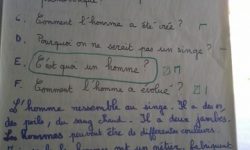 C. Comment l'homme a été créé ?
D. Pourquoi on ne serait pas un singe ?
E. C'est quoi un homme ?
F. Comment l'homme a évolué ?
L'homme ressemble au singe. Il a des os,
des poils, du sang chaud. Il a deux jambes.
Les hommes peuvent être de différentes couleurs.
un métier, fabriquent